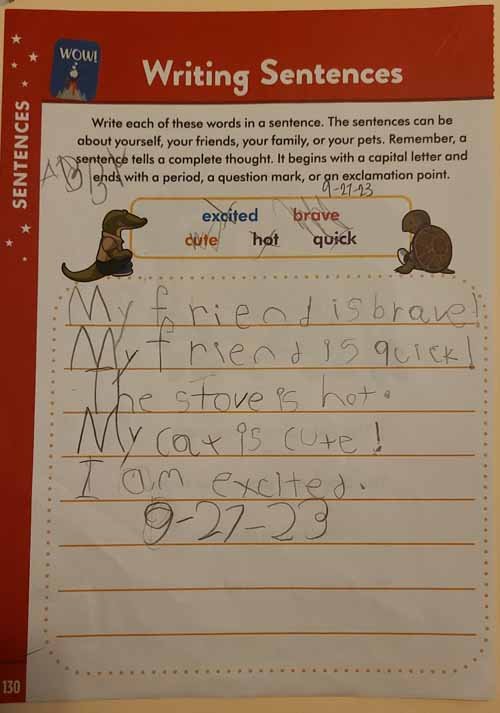 WOW!
Writing Sentences
SENTENCES
Write each of these words in a sentence. The sentences can be
about yourself, your friends, your family, or your pets. Remember, a
sentence tells a complete thought. It begins with a capital letter and
ends with a period, a question mark, or an exclamation point.
9-27-23
excited brave
cute hot quick
My friend is brave!
My friend is quick!
The stove is hot.
My cat is cute!
I am excited.
9-27-23
130